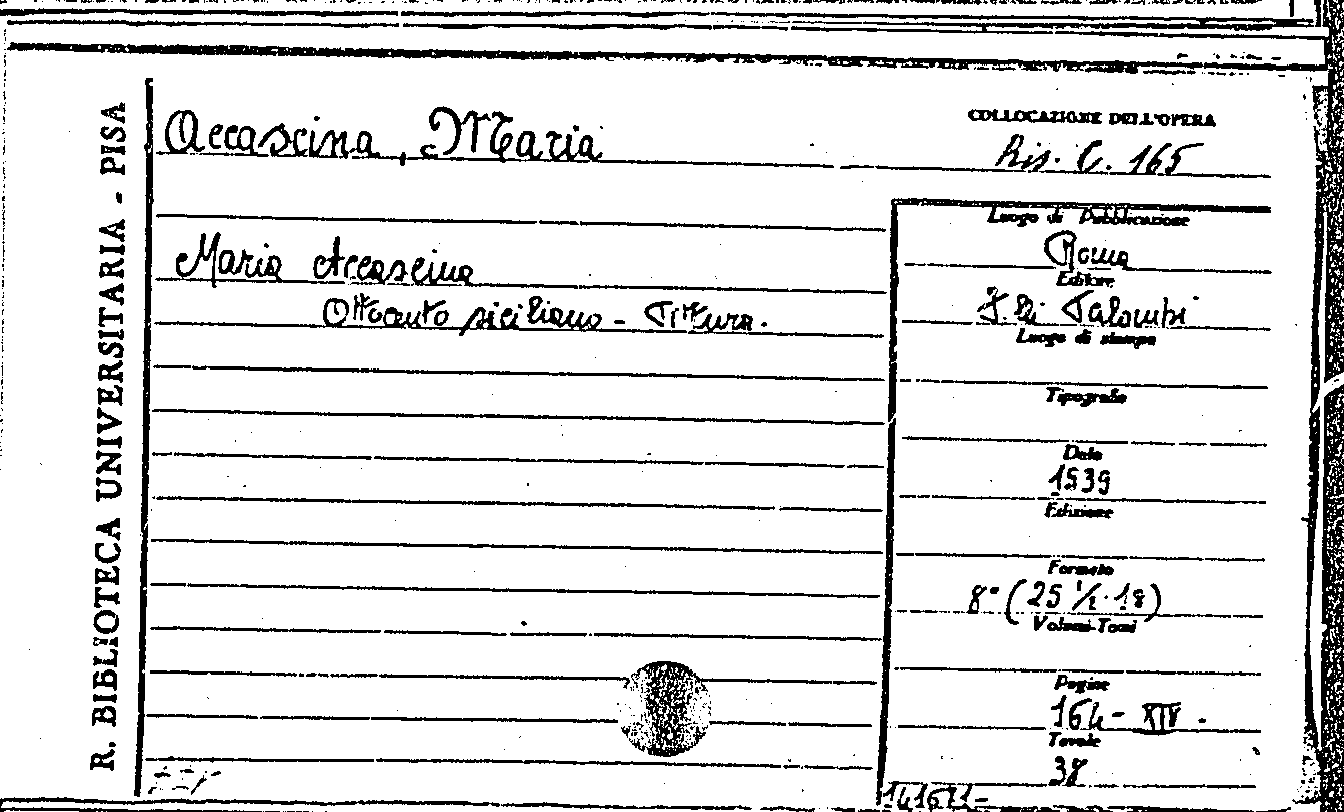 R. BIBLIOTECA UNIVERSITARIA - PISA
Accascina, Maria
COLLOCAZIONE DELL'OPERA
Ris. C. 165
Maria Accascina
Ottocento siciliano - Pittura.
Luogo di Pubblicazione
Roma
Editore
F.lli Palombi
Luogo di stampa
Tipografo
Data
1939
Edizione
Formato
8° (25 ½·18)
Volumi-Tomi
Pagine
164- XIV.
Tavole
38